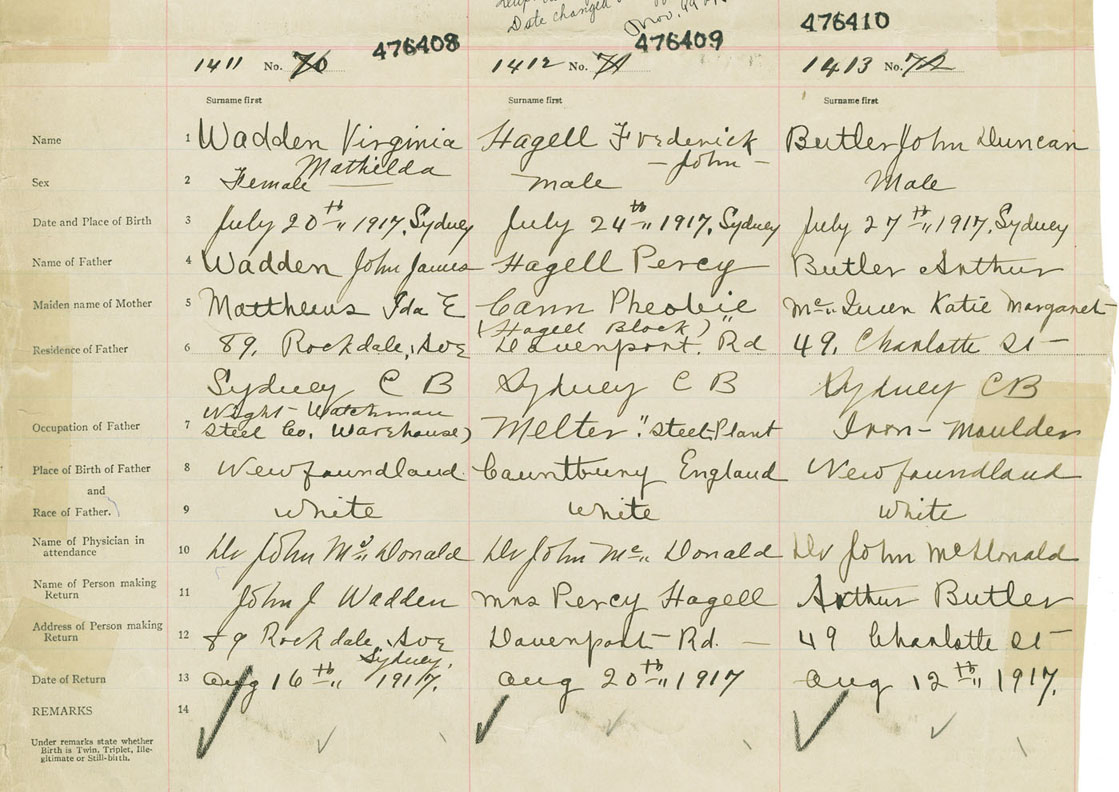 Date changed
Nov.
476408 476409 476410
1411 No. 70 1412 No. 71 1413 No. 72
Surname first Surname first Surname first
Name 1 Wadden Virginia Hagell Frederick Butler John Duncan
Mathilda – John –
Sex 2 Female male Male
Date and Place of Birth 3 July 20th 1917, Sydney July 24th 1917, Sydney July 27th 1917, Sydney
Name of Father 4 Wadden John James Hagell Percy Butler Arthur
Maiden name of Mother 5 Matthews Ida E Cann Pheobie Mc Queen Katie Margaret
(Hagell Block)
Residence of Father 6 89, Rockdale, Ave Davenport. Rd 49, Charlotte St –
Sydney C B Sydney C B Sydney CB
Night – Watchman
Occupation of Father 7 Steel Co, Warehouse) Melter "Steel Plant Iron – Moulder
Place of Birth of Father 8 Newfoundland Caunttbury England Newfoundland
and
Race of Father. 9 White White White
Name of Physician in
attendance 10 Dr John Mc Donald Dr John Mc Donald Dr John McDonald
Name of Person making
Return 11 John J Wadden Mrs Percy Hagell Arthur Butler
Address of Person making
Return 12 89 Rockdale, Ave Davenport Rd. – 49 Charlotte St –
Sydney,
Date of Return 13 Aug 16th 1917, Aug 20th 1917 Aug 12th 1917,
REMARKS 14
Under remarks state whether
Birth is Twin, Triplet, Ille-
gitimate or Still-birth.